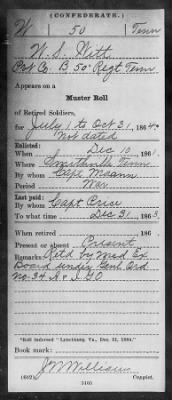 (CONFEDERATE.)
W 50 Tenn
W. S. Witt
Pvt Co. B, 50 Regt Tenn
Appears on a
Muster Roll
of Retired Soldiers,
for July 1 to Oct 31, 1864.
Not dated
Enlisted:
When Dec 10, 186
Where Tenn
By whom Capt
Period War
Last paid:
By whom Capt Crice
To what time Dec 31, 1863.
When retired , 186 .
Present or absent Present
Remarks: Retd by Med Ex
Board under Genl Ord
No. 34 A & I G O
"Roll indorsed "Lynchburg, Va., Dec. 31, 1864."
Book mark:
J W Williams
(682) Copyist.